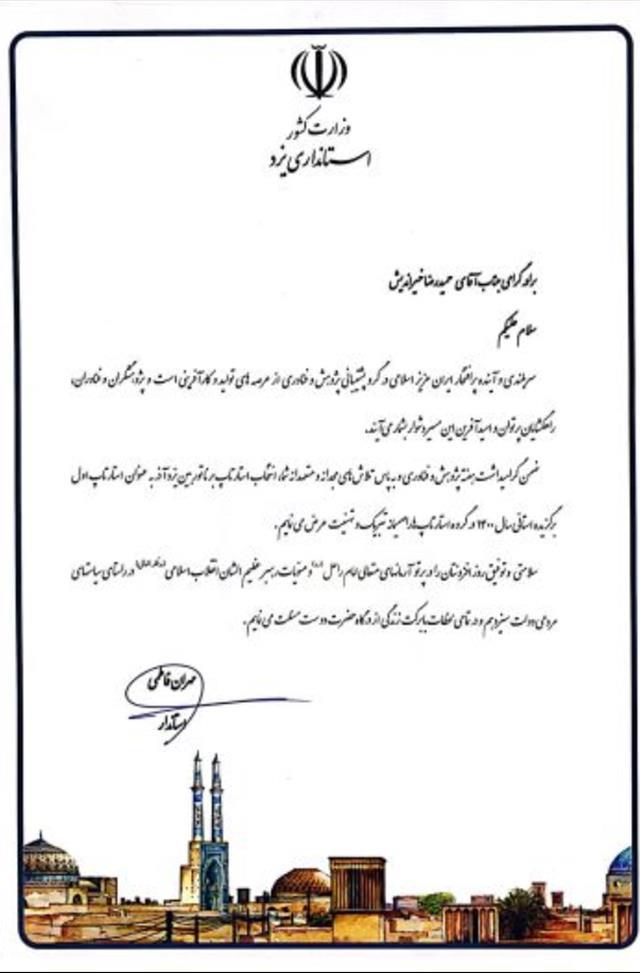 وزارت کشور
استانداری یزد
برادر گرامی جناب آقای حمیدرضا خیراندیش
سلام علیکم
سربلندی و آینده پرافتخار ایران عزیز اسلامی در گرو پشتیبانی پژوهش و فناوری از عرصه های تولید و کارآفرینی است و پژوهشگران و فناوران،
راهگشایان پرتوان و امیدآفرین این مسیر دشوار بشمار می آیند.
ضمن گرامیداشت هفته پژوهش و فناوری و به پاس تلاش های مجدانه و متعهدانه شما، انتخاب استارتاپ برنا نوربین یزد آذر به عنوان استارتاپ اول
برگزیده استانی سال ۱۴۰۰ در گروه استارتاپ ها را صمیمانه تبریک و تهنیت عرض می نمایم.
سلامتی و توفیق روزافزونتان را در پرتو آرمانهای متعالی امام راحل و منویات رهبر عظیم الشان انقلاب اسلامی در راستای سیاستهای
مردمی دولت سیزدهم و در تمامی لحظات بابرکت زندگی از درگاه حضرت دوست مسئلت می نمایم.
مهران فاطمی
استاندار